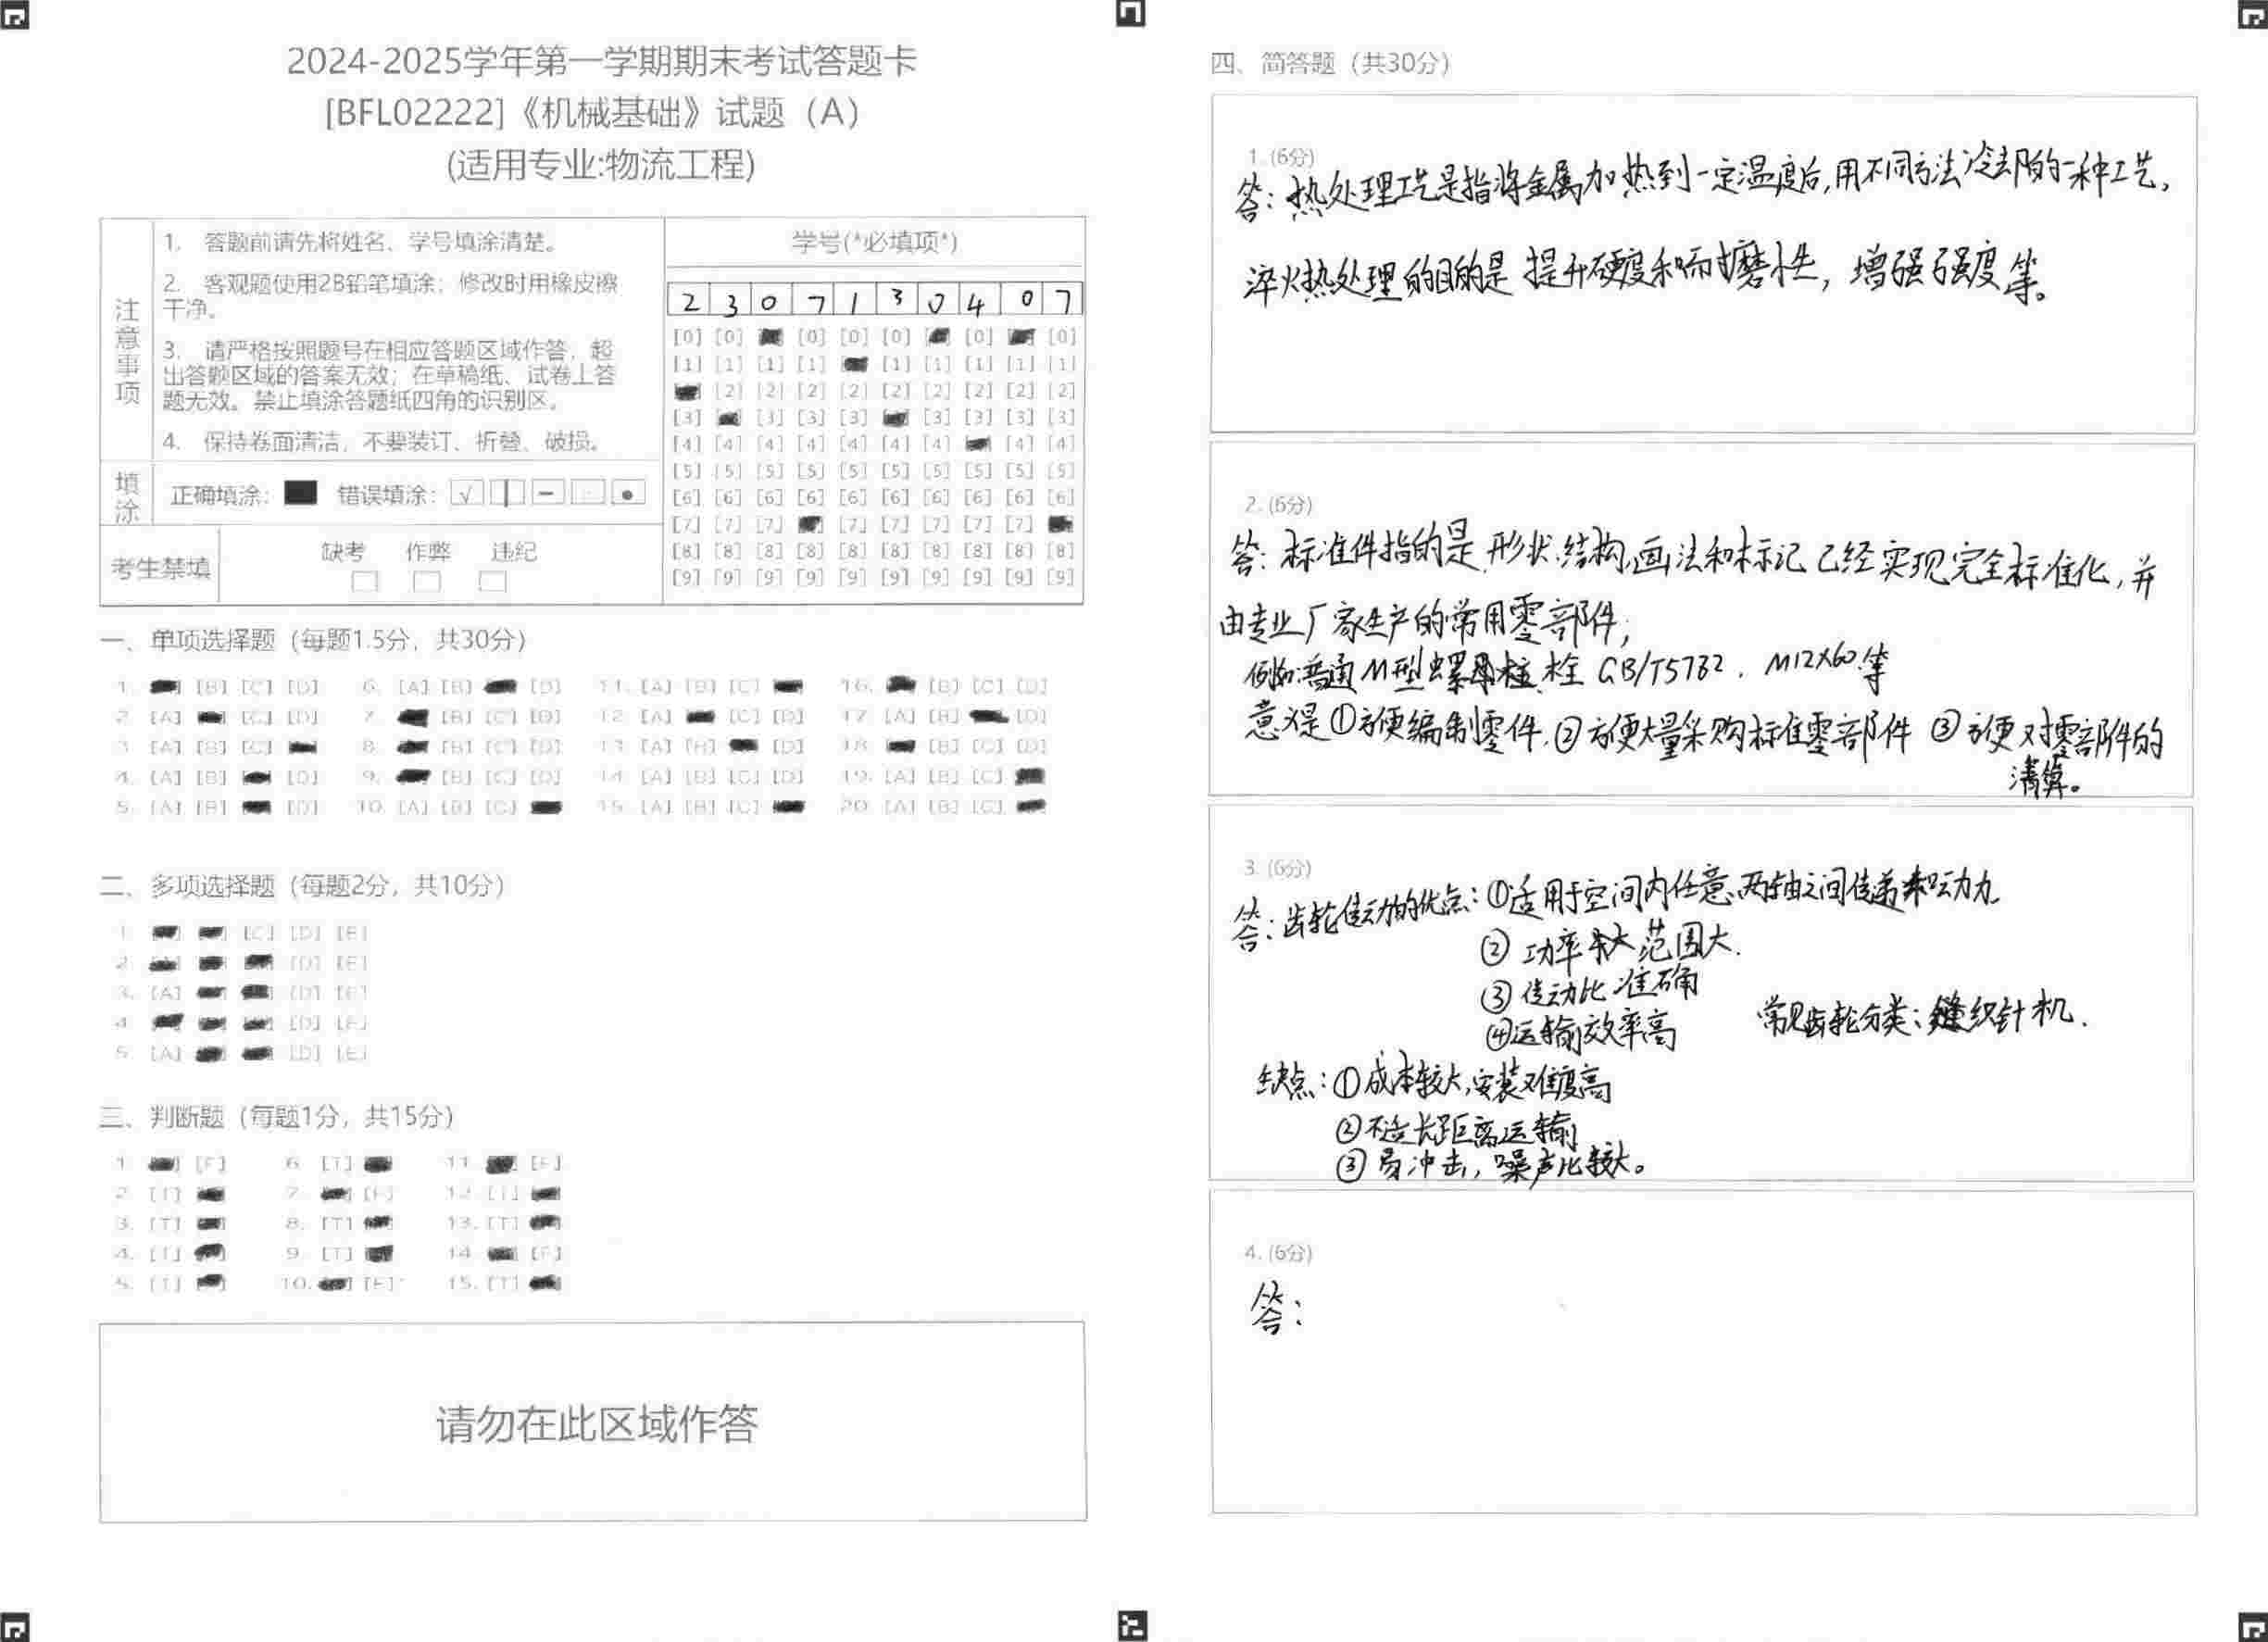 2024-2025学年第一学期期末考试答题卡
[BFL02222]《机械基础》试题（A）
(适用专业:物流工程)
注意事项
1. 答题前请先将姓名、学号填涂清楚。
2. 客观题使用2B铅笔填涂；修改时用橡皮擦
干净。
3. 请严格按照题号在相应答题区域作答，超
出答题区域的答案无效；在草稿纸、试卷上答
题无效。禁止填涂答题纸四角的识别区。
4. 保持卷面清洁，不要装订、折叠、破损。
填涂
正确填涂： 错误填涂：
考生禁填
缺考 作弊 违纪
学号(*必填项*)
2 3 0 7 1 3 0 4 0 7
[0] [0] [0] [0] [0] [0] [0]
[1] [1] [1] [1] [1] [1] [1] [1] [1]
[2] [2] [2] [2] [2] [2] [2] [2] [2]
[3] [3] [3] [3] [3] [3] [3] [3]
[4] [4] [4] [4] [4] [4] [4] [4] [4]
[5] [5] [5] [5] [5] [5] [5] [5] [5] [5]
[6] [6] [6] [6] [6] [6] [6] [6] [6] [6]
[7] [7] [7] [7] [7] [7] [7] [7]
[8] [8] [8] [8] [8] [8] [8] [8] [8] [8]
[9] [9] [9] [9] [9] [9] [9] [9] [9] [9]
一、单项选择题（每题1.5分，共30分）
1. [B] [C] [D] 6. [A] [B] [D] 11. [A] [B] [C] 16. [B] [C] [D]
2. [A] [C] [D] 7. [B] [C] [D] 12. [A] [C] [D] 17. [A] [B] [D]
3. [A] [B] [C] 8. [B] [C] [D] 13. [A] [B] [D] 18. [B] [C] [D]
4. [A] [B] [D] 9. [B] [C] [D] 14. [A] [B] [C] [D] 19. [A] [B] [C]
5. [A] [B] [D] 10. [A] [B] [C] 15. [A] [B] [C] 20. [A] [B] [C]
二、多项选择题（每题2分，共10分）
1. [C] [D] [E]
2. [D] [E]
3. [A] [D] [E]
4. [D] [E]
5. [A] [D] [E]
三、判断题（每题1分，共15分）
1. [F] 6. [T] 11. [F]
2. [T] 7. [F] 12. [T]
3. [T] 8. [T] 13. [T]
4. [T] 9. [T] 14. [F]
5. [T] 10. [F] 15. [T]
请勿在此区域作答
四、简答题（共30分）
1. (6分)
答：热处理工艺是指将金属加热到一定温度后,用不同方法冷却的一种工艺,
淬火热处理的目的是提升硬度和耐磨性，增强强度等。
2. (6分)
答：标准件指的是形状、结构、画法和标记已经实现完全标准化，并
由专业厂家生产的常用零部件；
例如：普通M型螺栓 GB/T5782. M12X60等
意义是①方便编制零件.②方便大量采购标准零部件 ③方便对零部件的
清算。
3. (6分)
答：齿轮传动的优点：①适用于空间内任意两轴之间传递和动力
② 功率大 范围大.
③ 传动比准确
④运输效率高
常见齿轮分类：缝织针机.
缺点：①成本较大,安装难度高
②不适长距离运输
③易冲击，噪声比较大。
4. (6分)
答：